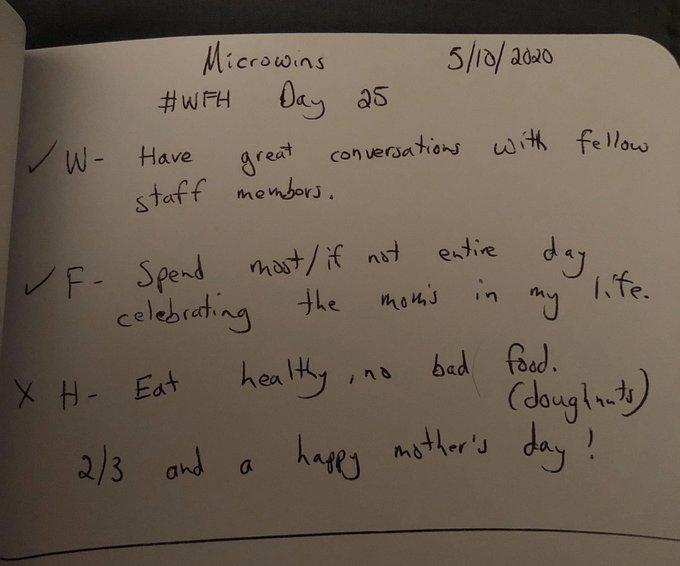 Microwins 5/10/2020
#WFH Day 25
✓ W- Have great conversations with fellow
staff members.
✓ F- Spend most/if not entire day
celebrating the mom's in my life.
X H- Eat healthy, no bad food.
(doughnuts)
2/3 and a happy mother's day!